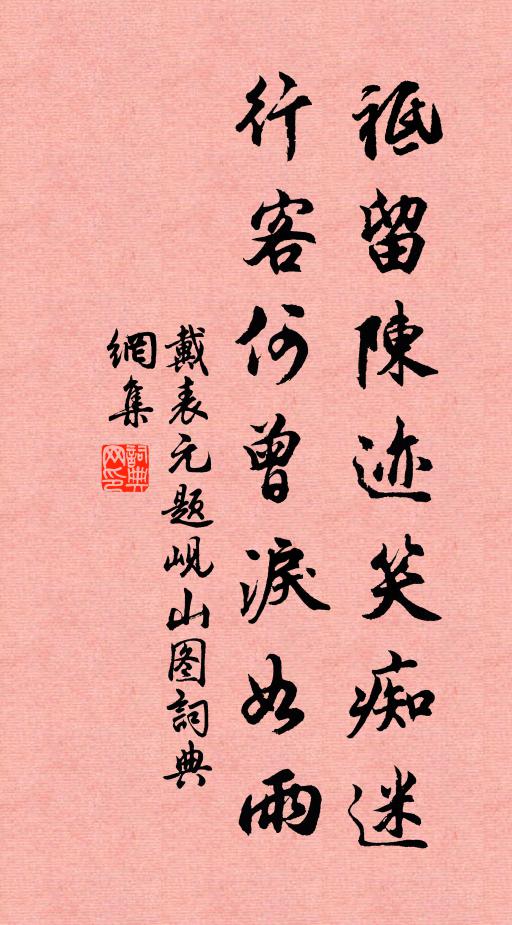 祗留陳迹笑痴迷
行客何曾淚如雨
戴表元题岘山图詞典
網集
詞典网印